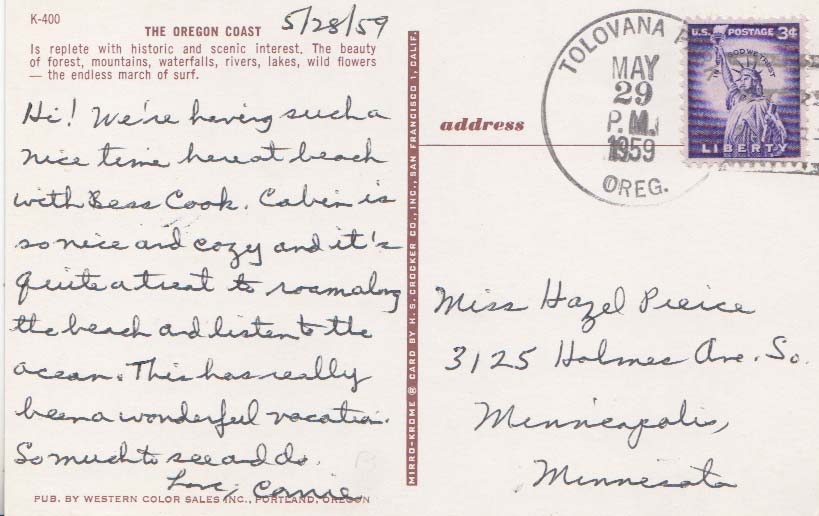 K-400
5/28/59
THE OREGON COAST
Is replete with historic and scenic interest. The beauty
of forest, mountains, waterfalls, rivers, lakes, wild flowers
— the endless march of surf.
Hi! We're having such a
nice time here at beach
with Bess Cook. Cabin is
so nice and cozy and it's
quite a treat to roam along
the beach and listen to the
ocean. This has really
been a wonderful vacation.
So much to see and do.
Love, Carrie
PUB. BY WESTERN COLOR SALES INC., PORTLAND, OREGON
MIRRO-KROME ® CARD BY H. S. CROCKER CO., INC., SAN FRANCISCO 1, CALIF.
address
TOLOVANA
MAY
29
P.M.
1959
OREG.
U.S. POSTAGE 3¢
IN GOD WE TRUST
LIBERTY
Miss Hazel Pierce
3125 Holmes Ave. So.
Minneapolis,
Minnesota